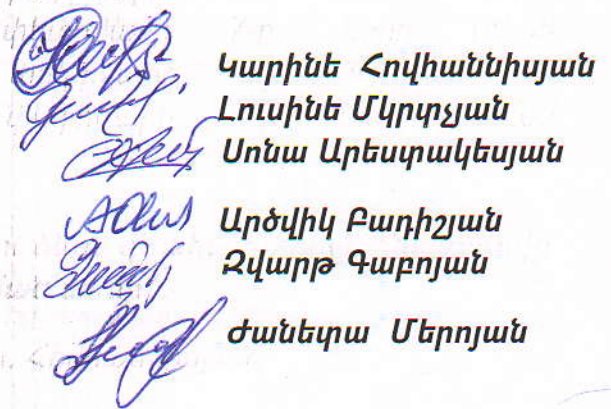 Կարինե Հովհաննիսյան
Լուսինե Մկրտչյան
Սոնա Արեստակեսյան
Արծվիկ Բադիշյան
Զվարթ Գաբոյան
Ժանետա Մերոյան